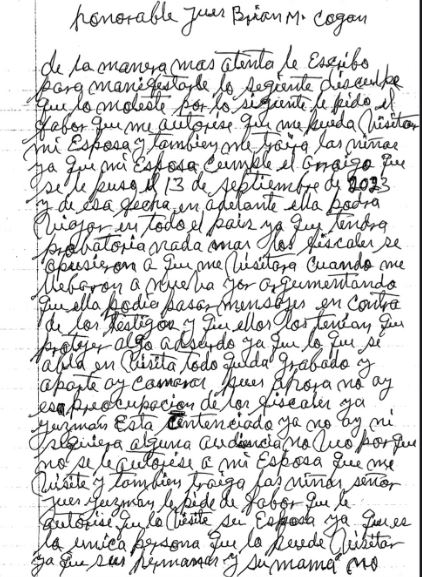 honorable jues Brian M. Cogan
de la manera mas atenta le Escribo
para manifestarle lo segiente disculpe
que lo moleste por lo segiente le pido el
fabor que me autorise que me pueda Visitar
mi Esposa y tambien me traiga las niñas
ya que mi Esposa cumple el araigo que
se le puso el 13 de septiembre de 2023
y de esa fecha en adelante ella podra
Viajar en todo el pais ya que tendra
probatoria nada mas los fiscales se
opusieron a que me Visitara cuando me
llebaron a nueva yor argumentando
que ella podia pasar mensajes en contra
de los testigos y que ellos los tenian que
proteger algo adsurdo ya que lo que se
abla en Visita todo queda grabado y
aparte ay camaras pues ahora no ay
esa preocupacion de los fiscales ya
guzman Esta Sentenciado ya no ay ni
seguiera alguna audencia no Veo por que
no se le autorise a mi Esposa que me
Visite y tambien traega las niñas señor
jues guzman le pide de fabor que le
autorise que lo Visite su Esposa ya que es
la unica persona que lo puede Visitar
ya que sus hermanas y su mama no